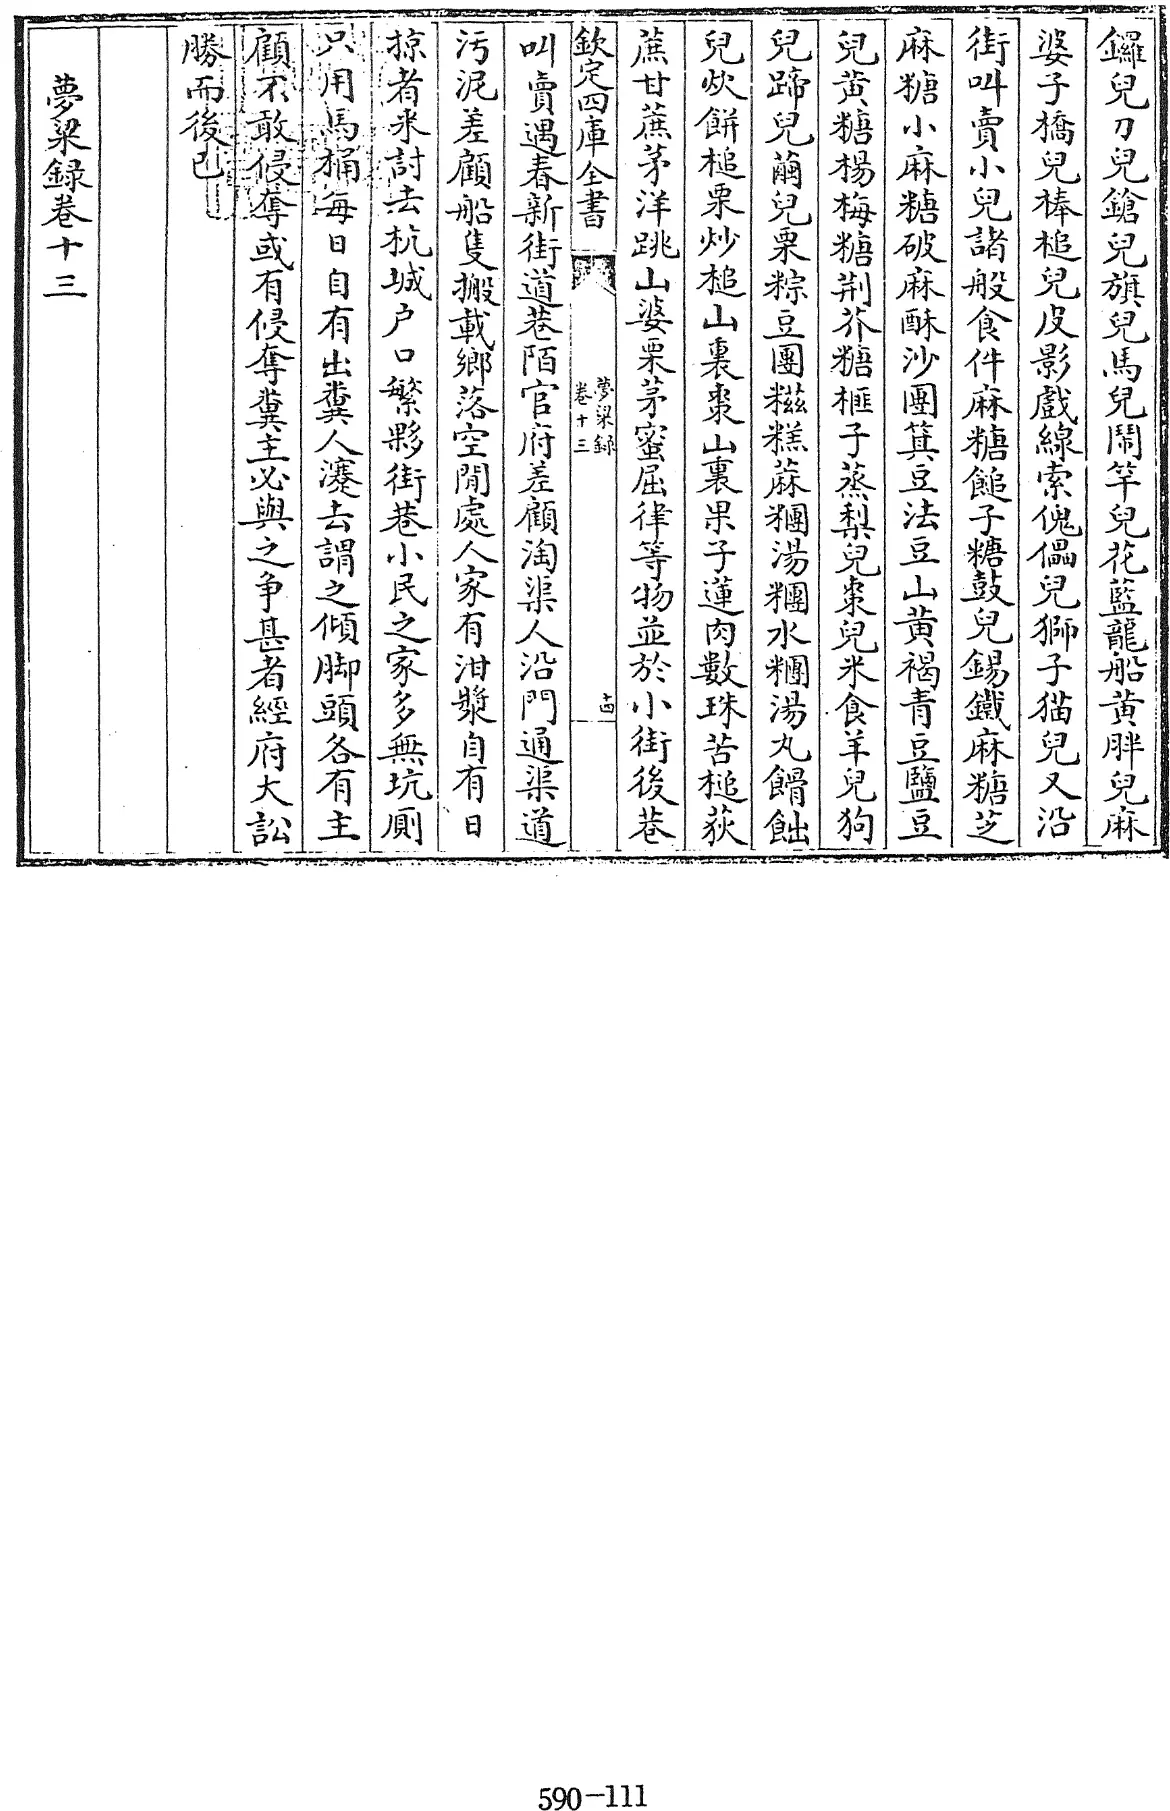 鑼兒刀兒鎗兒旗兒馬兒鬧竿兒花籃龍船黄胖兒麻
婆子橋兒棒槌兒皮影戲線索傀儡兒獅子猫兒又沿
街叫賣小兒諸般食件麻糖鎚子糖鼓兒錫鐵麻糖芝
麻糖小麻糖破麻酥沙團箕豆法豆山黄褐青豆鹽豆
兒黄糖楊梅糖荆芥糖榧子蒸梨兒棗兒米食羊兒狗
兒蹄兒繭兒栗粽豆團糍糕蔴糰湯糰水糰湯丸餶飿
兒炊餅槌栗炒槌山裏棗山裏果子蓮肉數珠苦槌荻
蔗甘蔗茅洋跳山婆栗茅蜜屈律等物並於小街後巷
欽定四庫全書
夢梁録
卷十三
十四
叫賣遇春新街道巷陌官府差顧淘渠人沿門通渠道
污泥差顧船隻搬載鄉落空閒處人家有泔漿自有日
掠者来討去杭城户口繁夥街巷小民之家多無坑厠
只用馬桶每日自有出糞人瀽去謂之傾脚頭各有主
顧不敢侵奪或有侵奪糞主必與之争甚者經府大訟
勝而後已
夢梁録卷十三
590-111